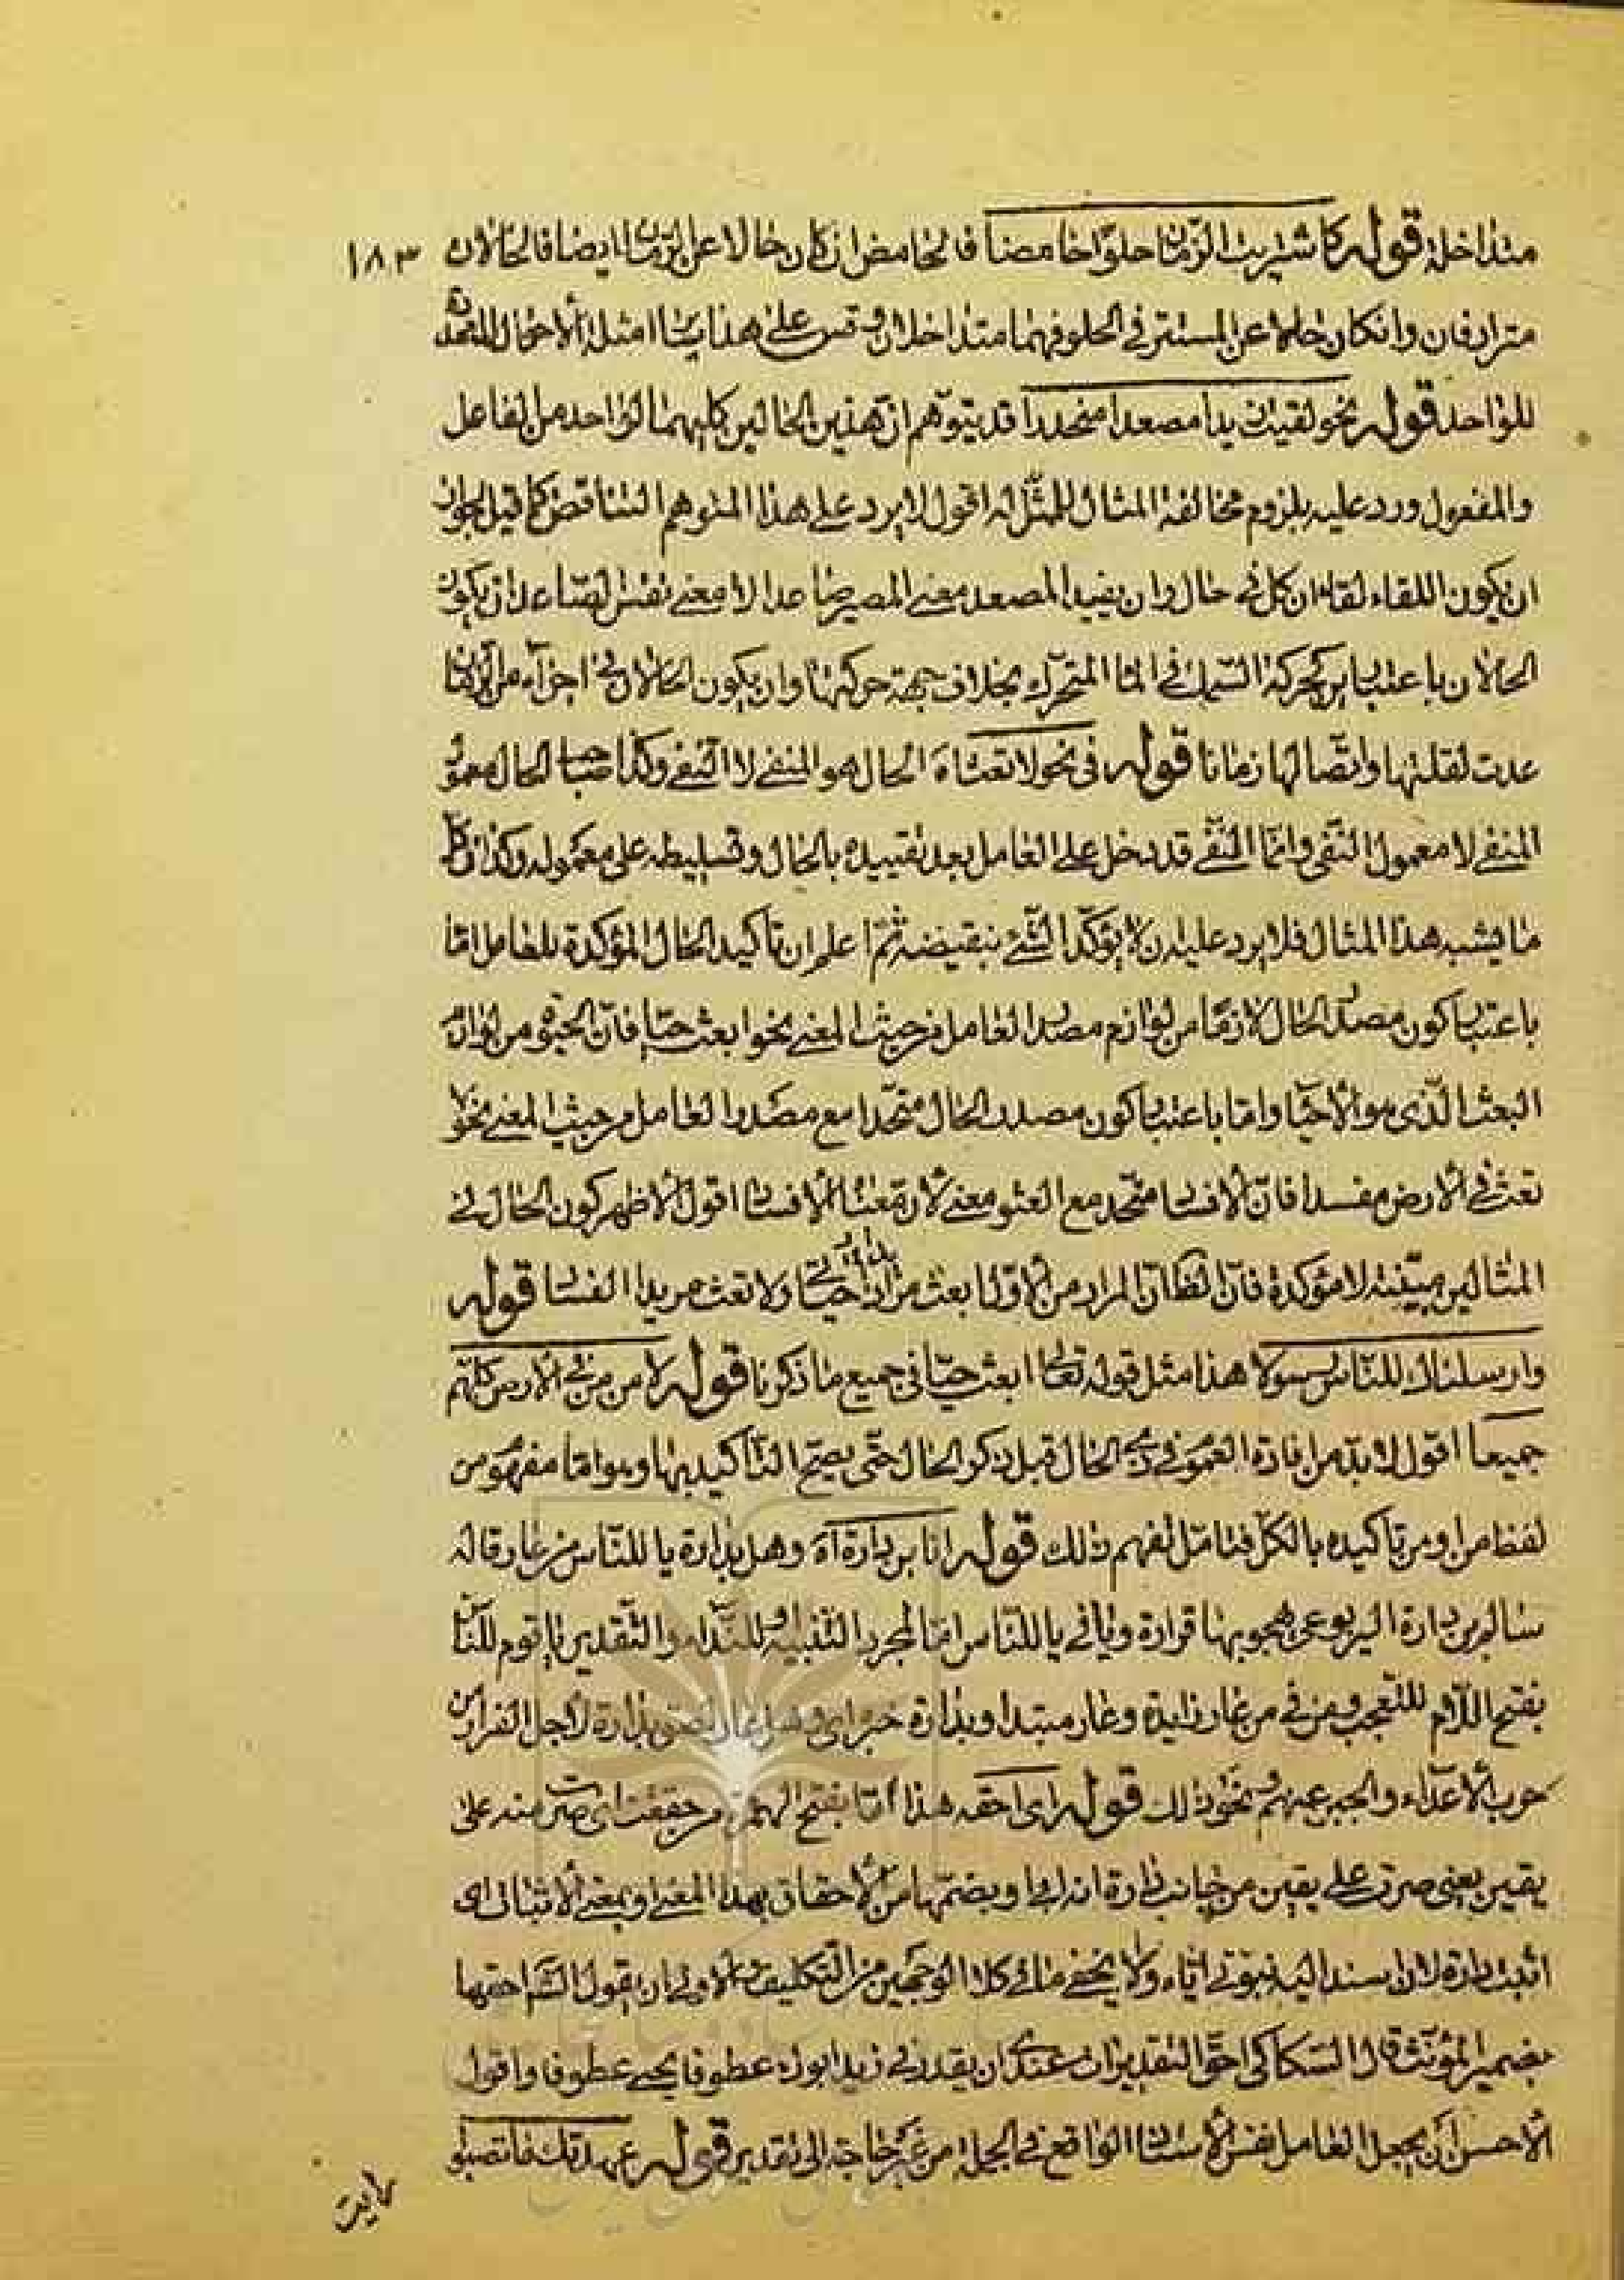 متداخلة قوله كاشتريت الرمان حلوا حامضا فالحامض ان كان حالا عن الرمان ايضا فالحالان ١٨٣
مترادفان وان كان حالا عن المستتر في الحلو فهما متداخلان وقس على هذا بيان امثلة الاحوال المتعددة
للواحد قوله نحو لقيت زيدا مصعدا منحدرا قد يتوهم ان هذين الحالين كليهما لواحد من الفاعل
والمفعول ورد عليه بلزوم مخالفة المثال للممثل له اقول لا يرد على هذا المتوهم التناقض كما قيل لجواز
ان يكون اللقاء لقاءان كل في حال وان يفيد المصعد معنى المصير صاعدا لا معنى نفس الصاعد او ان يكون
الحالان باعتبارين كحركة السمك في الماء المتحرك بخلاف جهة حركتها وان يكون الحالان في اجزاء من الزمان
عدت لقلتها واتصالها زمانا قوله في نحو لا تعث اه الحال هو المنفي لا النفي وكذا صاحب الحال معمول
المنفي لا معمول النفي وانما النفي قد دخل على العامل بعد تقييده بالحال وتسليطه على معموله وكذا كل
ما يشبه هذا المثال فلا يرد عليه ان لا يؤكد الشئ بنقيضه ثم اعلم ان تأكيد الحال المؤكدة للعامل اما
باعتبار كون مصدر الحال لازما من لوازم مصدر العامل من حيث المعنى نحو ابعث حيا فان الحيوة من لوازم
البعث الذي هو الاحياء واما باعتبار كون مصدر الحال متحدا مع مصدر العامل من حيث المعنى نحو لا
تعث في الارض مفسدا فان الافساد متحد مع العثو معنى لان معناه الافساد اقول الاظهر كون الحال في
المثالين مبينة لا مؤكدة فان الظان المراد من الاول ابعث مرادا حياتي ولا تعث مريدا الفساد قوله
وارسلناك للناس رسولا هذا مثل قوله تعالى ابعث حيا في جميع ما ذكرنا قوله لامن من في الارض كلهم
جميعا اقول لا بد من افادة العموم في ذي الحال قبل ذكر الحال حتى يصح التأكيد بها وهو اما مفهوم من
لفظ من او من تأكيده بالكل فتأمل لفهم ذلك قوله انا ابن دارة اه وهل بدارة يا للناس من عار قاله
سالم بن دارة اليربوعي يهجو بها فزارة ويا في يا للناس اما لمجرد التنبيه او للنداء والتقدير يا قوم للناس
بفتح اللام للتعجب ومن في من عار زايدة وعار مبتدا وبدارة خبر اي وهل عار بدارة لاجل الفرار من
حرب الاعداء والجبن عنهم ونحو ذلك قوله اي احقه هذا اما بفتح الهمزة من حققت اي صرت منه على
يقين يعني صرت على يقين من جانب دارة انه ابي او بضمها من الاحقاق بهذا المعنى او بمعنى الاثبات اي
اثبت دارة لان اسند اليه نبوتي اياه ولا يخفى ما في كلا الوجهين من التكليف والاولى ان يقول الش احقها
بضمير المؤنث قال السكاكي احق التقديرات عندي ان يقدر في زيد ابوك عطوفا يحيى عطوفا واقول
الاحسن ان يجعل العامل نفس الاسناد الواقع في الجملة من غير حاجة الى تقدير قوله عهدتك ما تصبو
لايت